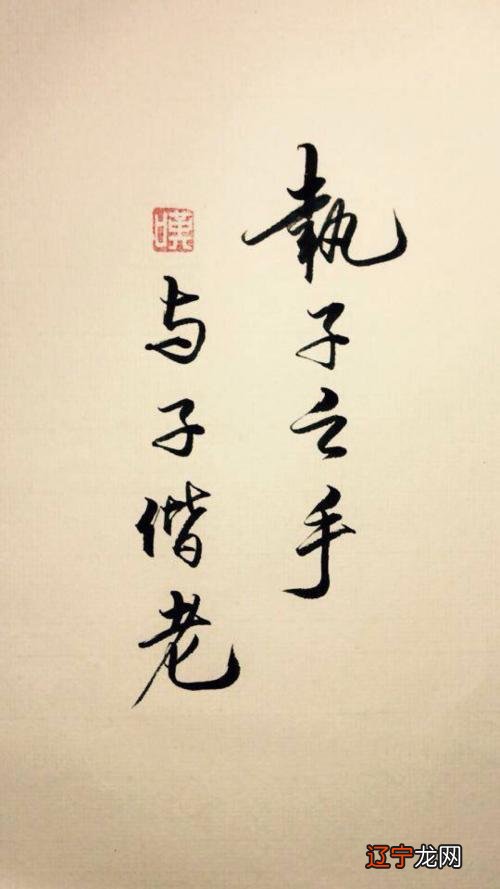 執子之手
与子偕老
辽宁龙网